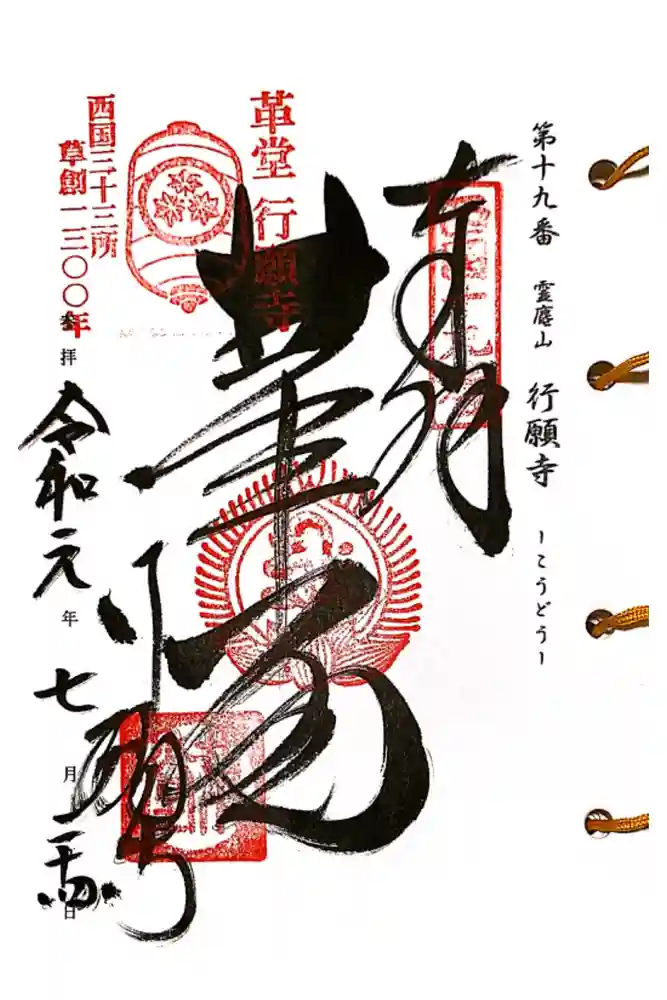 第十九番 霊麀山 行願寺 ーこうどうー
奉拝
西国十九番
革堂
革堂 行願寺
行願寺
西国三十三所
草創一三〇〇年
拝 令和元年 七月 日